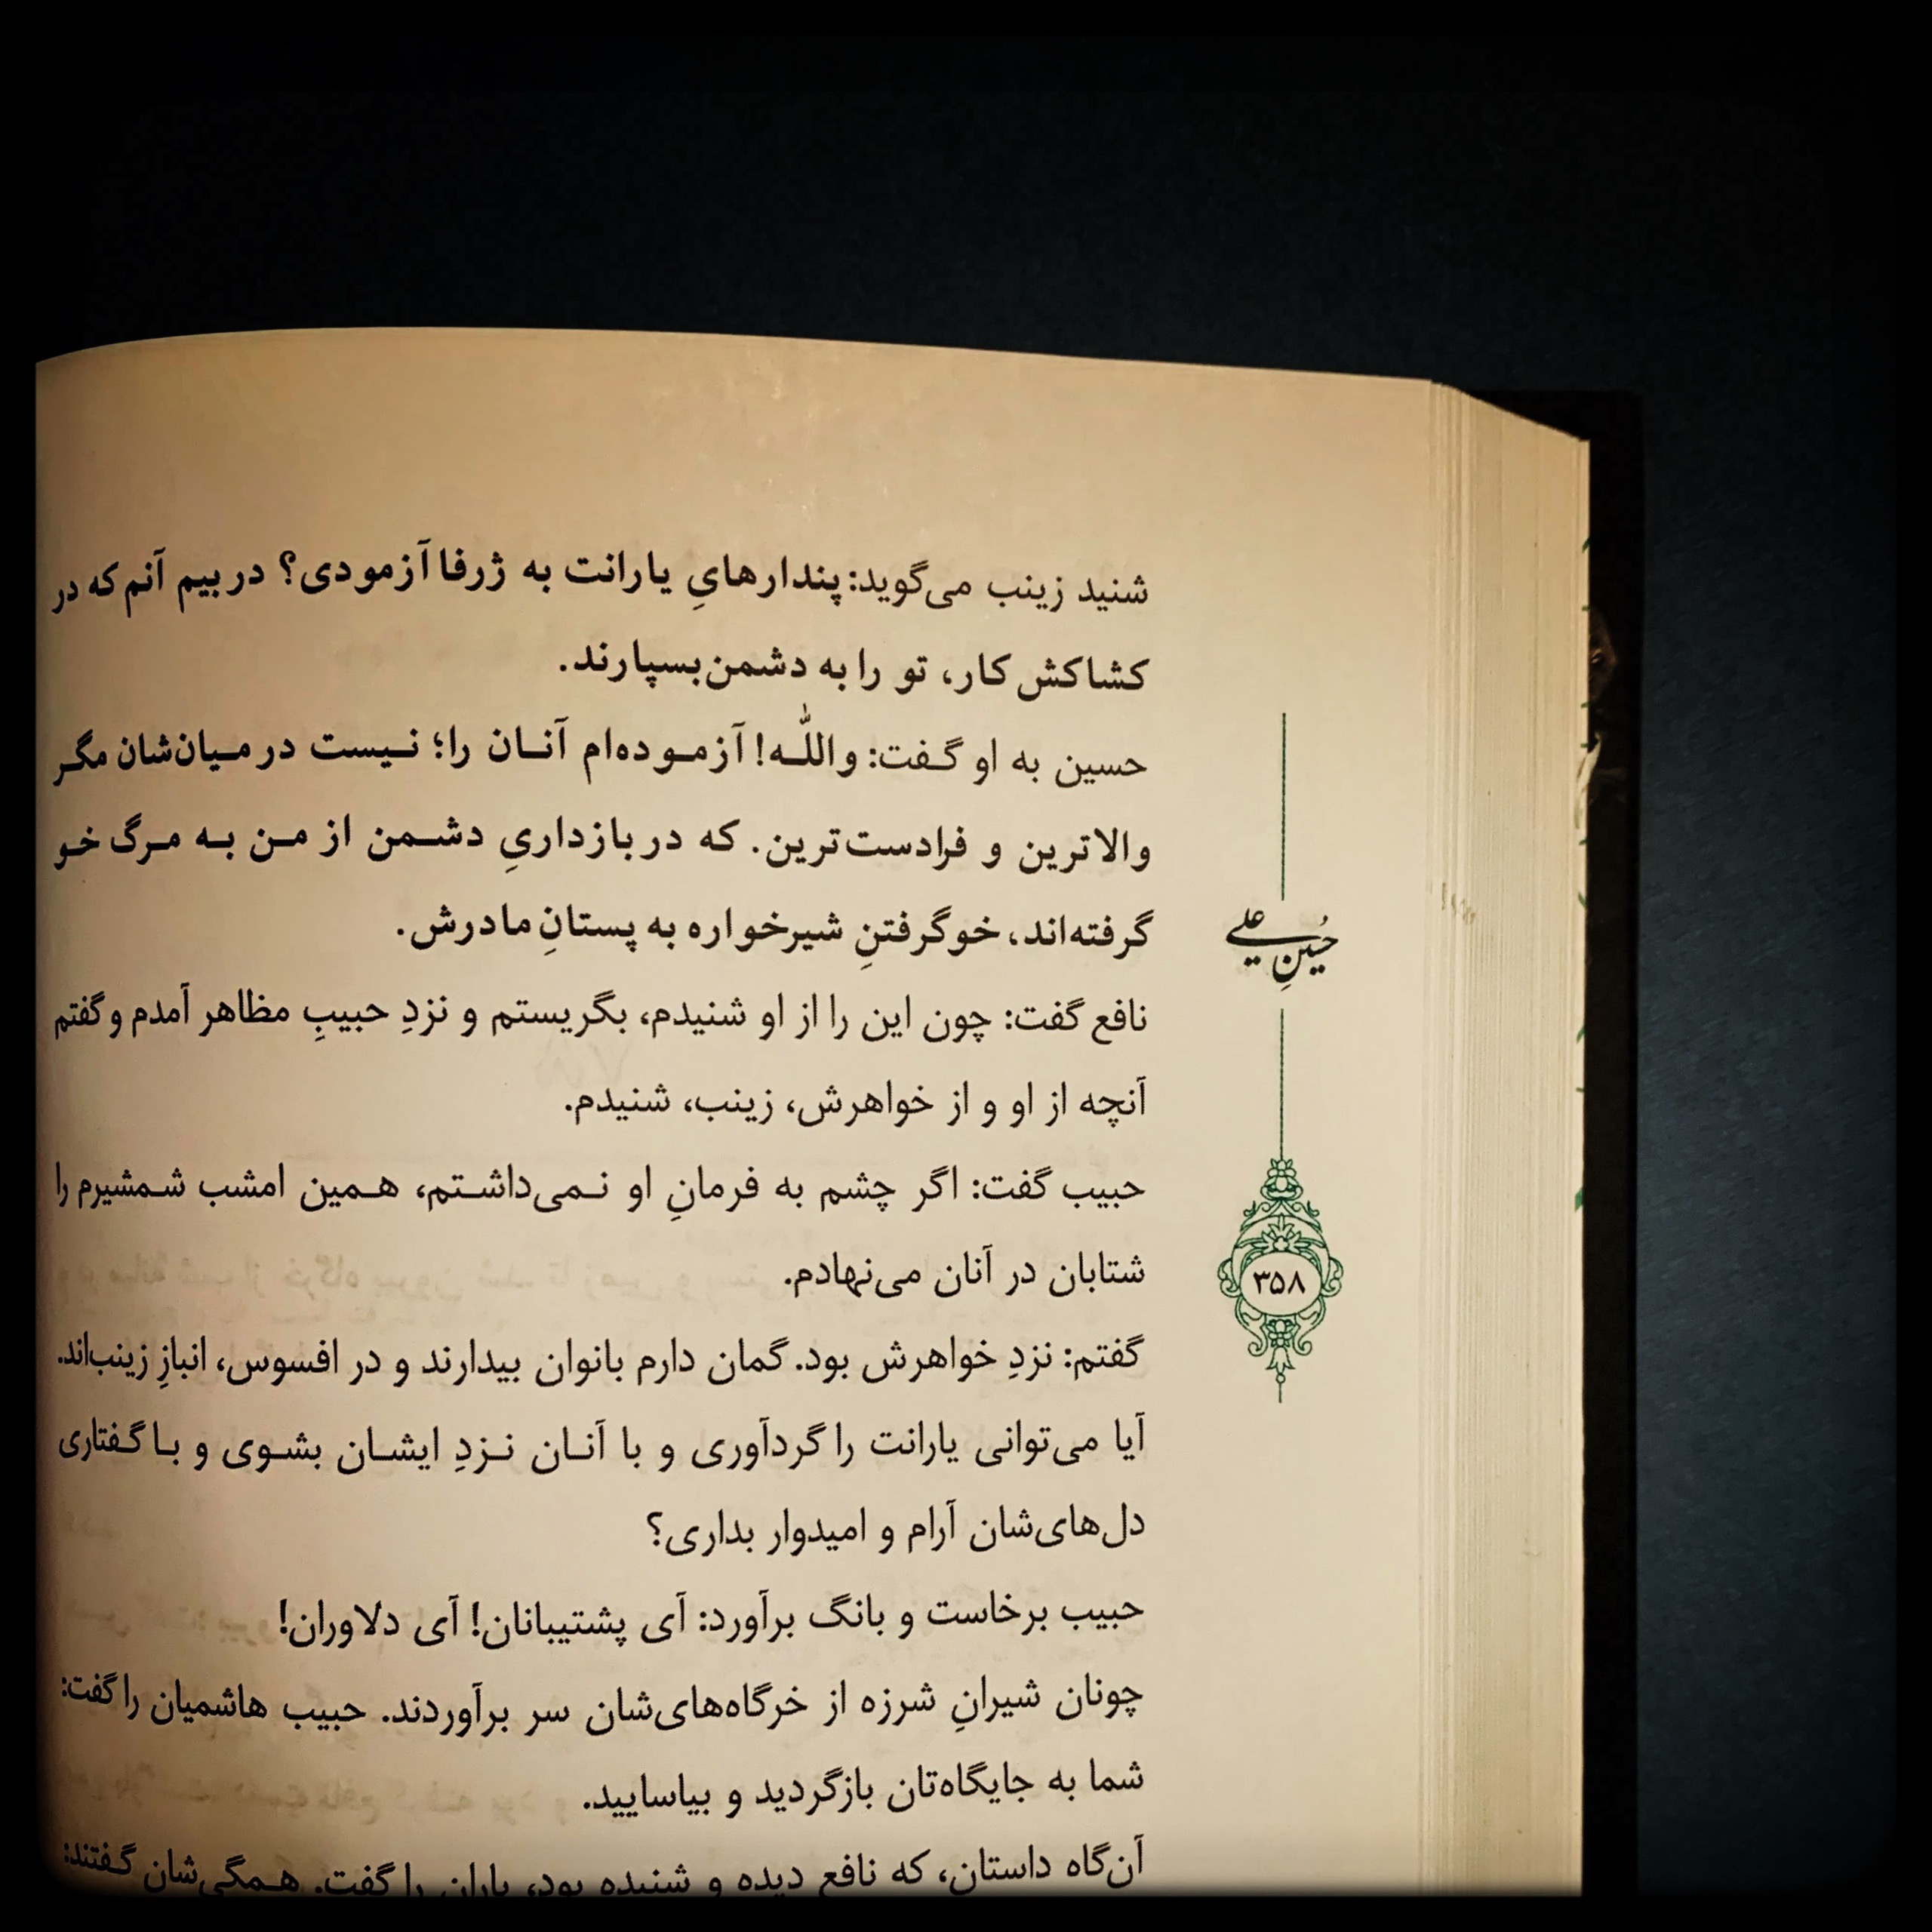 شنید زینب می‌گوید: پندارهایِ یارانت به ژرفا آزمودی؟ در بیم آنم که در
کشاکش کار، تو را به دشمن بسپارند.
حسین به او گفت: واللّه! آزموده‌ام آنان را؛ نیست در میان‌شان مگر
والاترین و فرادست‌ترین. که در بازداریِ دشمن از من به مرگ خو
گرفته‌اند، خو گرفتنِ شیرخواره به پستانِ مادرش.
نافع گفت: چون این را از او شنیدم، بگریستم و نزدِ حبیبِ مظاهر آمدم و گفتم
آنچه از او و از خواهرش، زینب، شنیدم.
حبیب گفت: اگر چشم به فرمانِ او نمی‌داشتم، همین امشب شمشیرم را
شتابان در آنان می‌نهادم.
گفتم: نزدِ خواهرش بود. گمان دارم بانوان بیدارند و در افسوس، انبازِ زینب‌اند.
آیا می‌توانی یارانت را گردآوری و با آنان نزدِ ایشان بشوی و با گفتاری
دل‌های‌شان آرام و امیدوار بداری؟
حبیب برخاست و بانگ برآورد: آی پشتیبانان! آی دلاوران!
چونان شیرانِ شرزه از خرگاه‌های‌شان سر برآوردند. حبیب هاشمیان را گفت:
شما به جایگاه‌تان بازگردید و بیاسایید.
آن‌گاه داستان، که نافع دیده و شنیده بود، یاران را گفت. همگی‌شان گفتند:
حُسینِ علی
۳۵۸